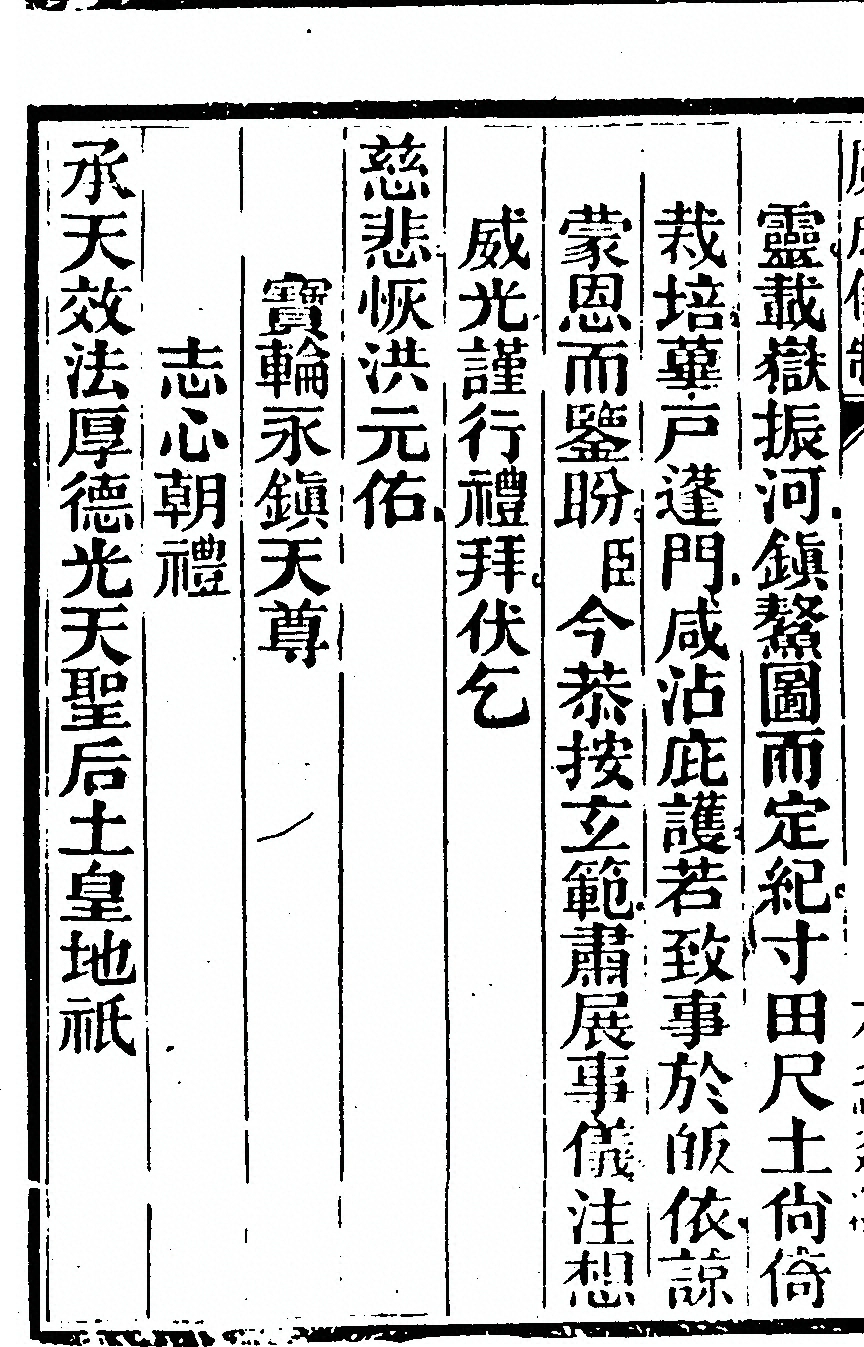 靈載嶽振河鎭鰲圖而定紀寸田尺土尙倚
栽培蓽戶蓬門咸沾庇護若致事於皈依諒
蒙恩而鑒盼臣今恭按玄範肅展事儀注想
威光謹行禮拜伏乞
慈悲恢洪元佑
寶輪永鎭天尊
志心朝禮
承天效法厚德光天聖后土皇地祇